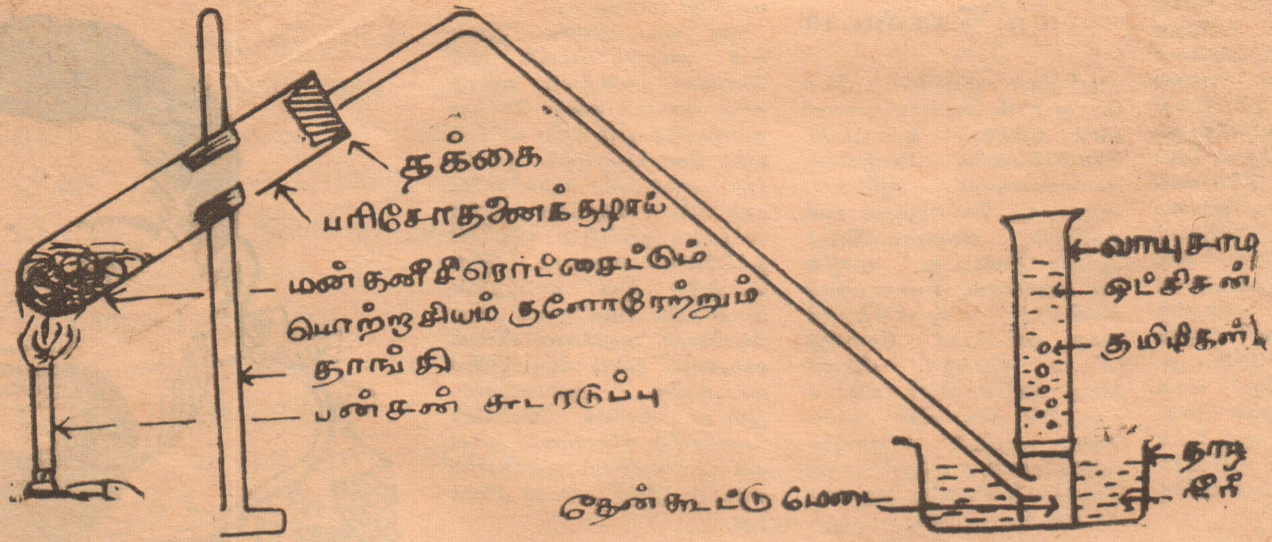 தக்கை
பரிசோதணைக் குழாய்
மன்கனீசீரொட்சைட்டும்
பொற்றாசியம் குளோரேற்றும்
தாங்கி
பன்சன் சுடரடுப்பு
வாயுசாடி
ஒட்சிசன்
குமிழிகள்
தாழி
நீர்
தேன்கூட்டு மேடை